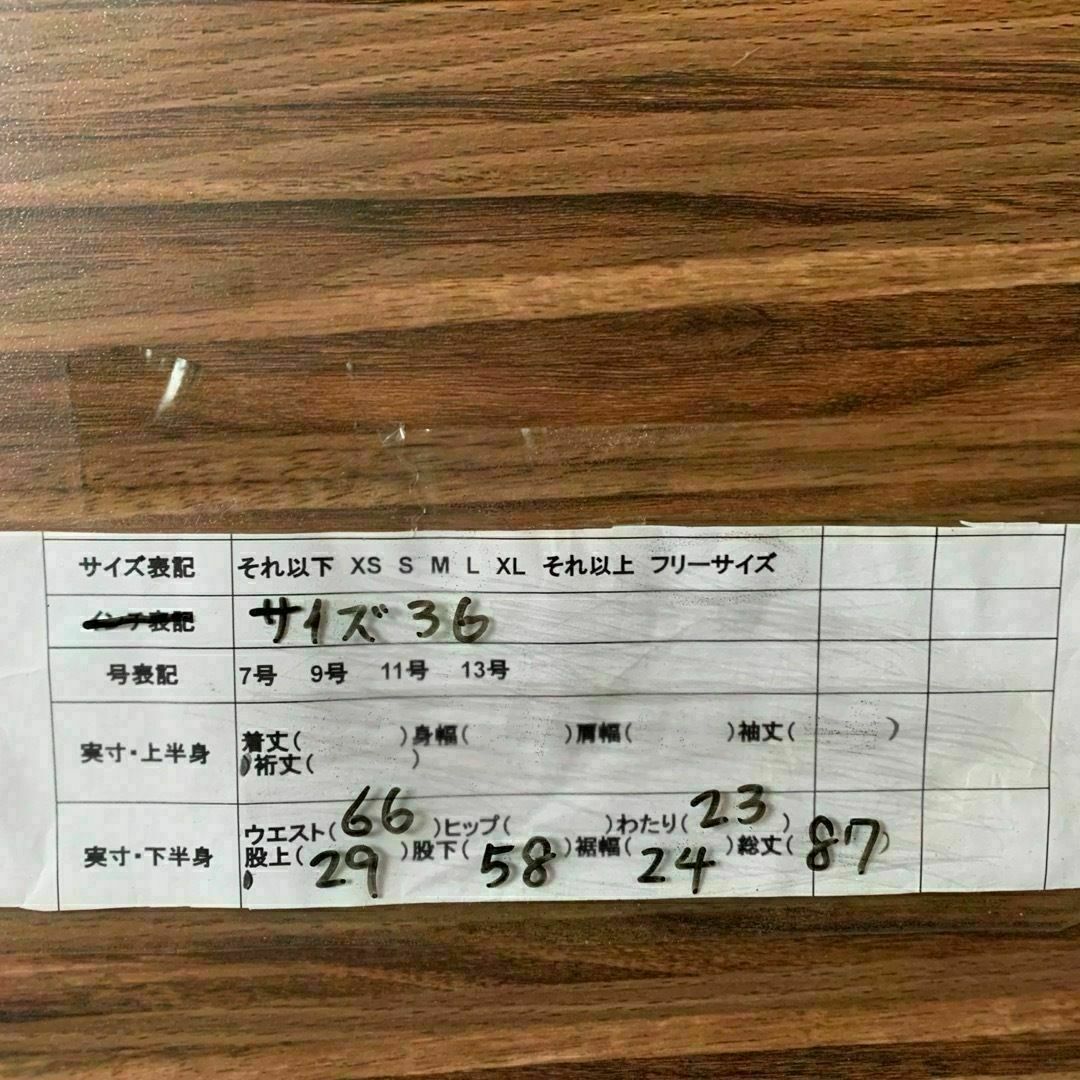 サイズ表記 それ以下 XS S M L XL それ以上 フリーサイズ
インチ表記 サイズ36
号表記 7号 9号 11号 13号
実寸・上半身 着丈( )身幅( )肩幅( )袖丈( )
)裄丈( )
実寸・下半身 ウエスト(66)ヒップ( )わたり(23)
股上(29)股下(58)裾幅(24)総丈(87)
)